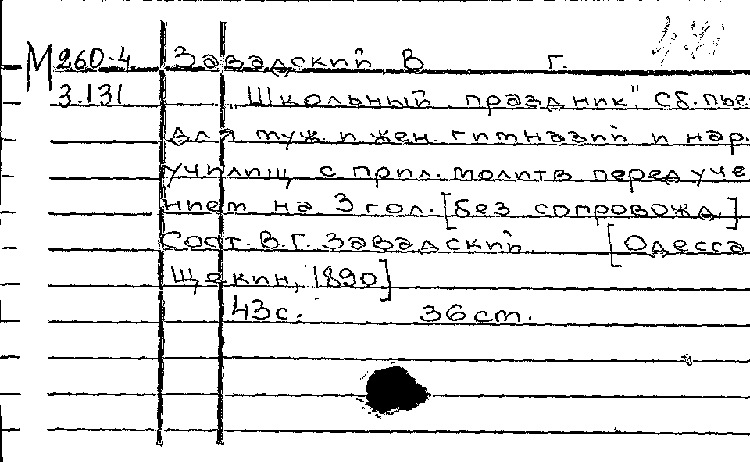 М 260-4 Завадский В г.
3.131 „Школьный праздник" Сб. пье
для муж. и жен. гимназий и нар.
училищ с прил. молитв перед уче
нием на 3 гол. [без сопровожд.]
Сост. В.Г. Завадский. [Одесса
Щекин, 1890]
43с. 36 см.